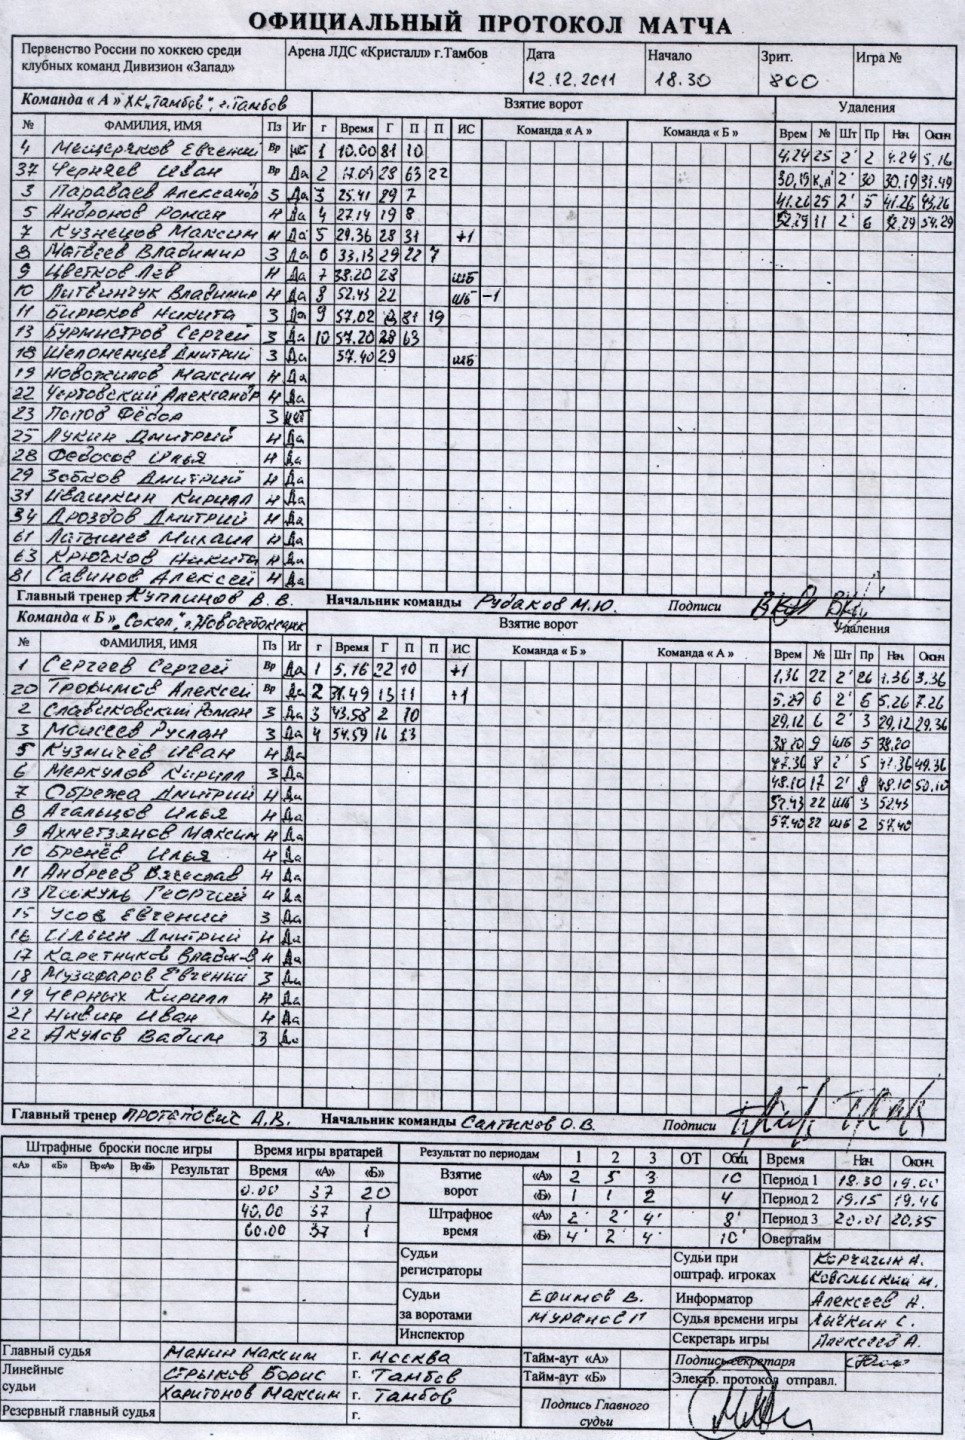 ОФИЦИАЛЬНЫЙ ПРОТОКОЛ МАТЧА
Первенство России по хоккею среди клубных команд Дивизион «Запад»
Арена ЛДС «Кристалл» г.Тамбов
Дата 12.12.2011
Начало 18.30
Зрит. 800
Игра №
Команда « А » ХК „Тамбов", г. Тамбов
Взятие ворот
Удаления
№ ФАМИЛИЯ, ИМЯ Пз Иг г Время Г П П ИС Команда « А » Команда « Б » Врем № Шт Пр Нач Окон
4 Мещеряков Евгений Вр нет 1 10.00 81 10 4.24 25 2' 2 4.24 5.16
37 Черняев Иван Вр Да 2 17.09 28 63 22 30.19 К.А' 2' 30 30.19 31.49
3 Параваев Александр З Да 3 25.41 29 7 41.26 25 2' 5 41.26 43.26
5 Андронов Роман Н Да 4 27.14 19 8 52.29 11 2' 6 52.29 54.29
7 Кузнецов Максим Н Да 5 29.36 28 31 +1
8 Матвеев Владимир З Да 6 33.13 29 22 7
9 Цветков Лев Н Да 7 38.20 28 шб
10 Литвинчук Владимир Н Да 8 52.43 22 шб -1
11 Бирюков Никита З Да 9 57.02 8 81 19
13 Бурмистров Сергей З Да 10 57.20 28 63
18 Шеломенцев Дмитрий З Да 57.40 29 шб
19 Новожилов Максим Н Да
22 Чертовский Александр Н Да
23 Попов Фёдор З нет
25 Лукин Дмитрий Н Да
28 Федосов Илья Н Да
29 Зобков Дмитрий Н Да
31 Ивашкин Кирилл Н Да
34 Дроздов Дмитрий Н Да
61 Латышев Михаил Н Да
63 Крючков Никита Н Да
81 Савинов Алексей Н Да
Главный тренер Куплинов В. В. Начальник команды Рудаков М.Ю. Подписи
Команда « Б » „Сокол", г. Новочебоксарск
Взятие ворот
Удаления
№ ФАМИЛИЯ, ИМЯ Пз Иг г Время Г П П ИС Команда « Б » Команда « А » Врем № Шт Пр Нач Окон
1 Сергеев Сергей Вр Да 1 5.16 22 10 +1 1,36 22 2' 26 1.36 3.36
20 Трофимов Алексей Вр Да 2 31.49 13 11 +1 5.27 6 2' 6 5.26 7.26
2 Славиковский Роман З Да 3 43.58 2 10 29,12 6 2' 3 29,12 29,36
3 Моисеев Руслан З Да 4 54.59 16 13 38.20 9 шб 5 38.20
5 Кузмичёв Иван Н Да 47.36 8 2' 5 47.36 49.36
6 Меркулов Кирилл З Да 48.10 17 2' 8 48.10 50.10
7 Обрежа Дмитрий Н Да 52.43 22 шб 3 52.43
8 Агальцов Илья Н Да 57.40 22 шб 2 57.40
9 Ахметзянов Максим Н Да
10 Бренёв Илья Н Да
11 Андреев Вячеслав Н Да
13 Пикуль Георгий Н Да
15 Усов Евгений З Да
16 Ильин Дмитрий Н Да
17 Каретников Влади-в Н Да
18 Музафаров Евгений З Да
19 Черных Кирилл Н Да
21 Нивин Иван Н Да
22 Акулов Вадим З Да
Главный тренер Протапович А.В. Начальник команды Салтыков О.В. Подписи
Штрафные броски после игры
«А» «Б» Вр«А» Вр«Б» Результат
Время игры вратарей
Время «А» «Б»
0.00 37 20
40.00 37 1
60.00 37 1
Результат по периодам 1 2 3 ОТ Общ
Взятие ворот «А» 2 5 3 10
«Б» 1 1 2 4
Штрафное время «А» 2' 2' 4' 8'
«Б» 4' 2' 4' 10'
Время Нач. Оконч.
Период 1 18.30 19.00
Период 2 19.15 19.46
Период 3 20.01 20.35
Овертайм
Судьи регистраторы
Судьи за воротами Ефимов В.
Муранов П
Инспектор
Судьи при оштраф. игроках Корчагин А.
Ковальский М.
Информатор Алексеев А.
Судья времени игры Лычкин С.
Секретарь игры Алексеев А.
Главный судья Манин Максим г. Москва
Линейные судьи Стрыков Борис г. Тамбов
Харитонов Максим г. Тамбов
Резервный главный судья г.
Тайм-аут «А»
Тайм-аут «Б»
Подпись секретаря
Электр. протокол отправл.
Подпись Главного судьи